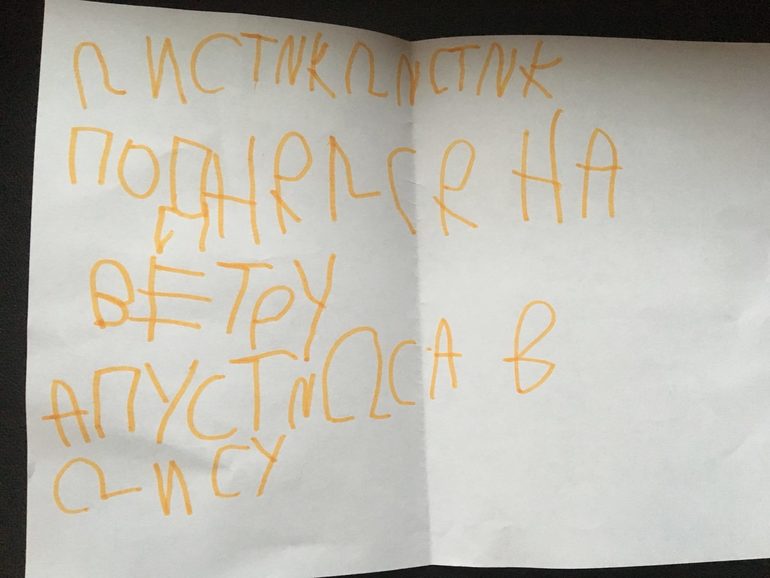 ЛИСТИКЛИСТИК
ПОДНЯЛСЯ НА
ВЕТРУ
АПУСТИЛСА В
ЛИСУ